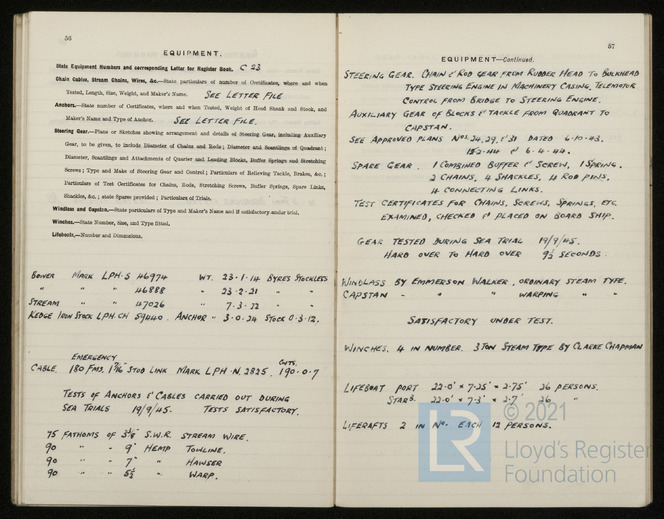 56
EQUIPMENT.
State Equipment Numbers and corresponding Letter for Register Book. C 23
Chain Cables, Stream Chains, Wires, &c.—State particulars of number of Certificates, where and when
Tested, Length, Size, Weight, and Maker's Name. SEE LETTER FILE
Anchors.—State number of Certificates, where and when Tested, Weight of Head Shank and Stock, and
Maker's Name and Type of Anchor. SEE LETTER FILE.
Steering Gear.—Plans or Sketches showing arrangement and details of Steering Gear, including Auxiliary
Gear, to be given, to include Diameter of Chains and Rods; Diameter and Scantlings of Quadrant;
Diameter, Scantlings and Attachments of Quarter and Leading Blocks, Buffer Springs and Stretching
Screws; Type and Make of Steering Gear and Control; Particulars of Relieving Tackle, Brakes, &c.;
Particulars of Test Certificates for Chains, Rods, Stretching Screws, Buffer Springs, Spare Links,
Shackles, &c.; state Spares provided; Particulars of Trials.
Windlass and Capstan.—State particulars of Type and Maker's Name and if satisfactory under trial.
Winches.—State Number, Size, and Type fitted.
Lifeboats.—Number and Dimensions.
BOWER MARK LPH-S 46974 WT. 23-1-14 BYERS STOCKLESS
" " " 46888 " 23-2-21 " "
STREAM " " 47026 " 7-3-22 " "
KEDGE IRON STOCK LPH-CH 59440. ANCHOR " 3-0-24 STOCK 0-3-12.
EMERGENCY
CABLE 180 FMS. STUD LINK MARK LPH-N. 2825. CWTS. 190-0-7
TESTS OF ANCHORS & CABLES CARRIED OUT DURING
SEA TRIALS 19/9/45. TESTS SATISFACTORY.
75 FATHOMS OF S.W.R. STREAM WIRE.
90 " - 9" HEMP TOWLINE.
90 " - 7" " HAWSER
90 " - " WARP.
57
EQUIPMENT—Continued.
STEERING GEAR. CHAIN & ROD GEAR FROM RUDDER HEAD TO BULKHEAD
TYPE STEERING ENGINE IN MACHINERY CASING, TELEMOTOR
CONTROL FROM BRIDGE TO STEERING ENGINE.
AUXILIARY GEAR OF BLOCKS & TACKLE FROM QUADRANT TO
CAPSTAN.
SEE APPROVED PLANS Nos. 24, 29, & 31 DATED 6-10-43.
& 6-4-44.
SPARE GEAR. 1 COMBINED BUFFER & SCREW, 1 SPRING.
2 CHAINS, 4 SHACKLES, 4 ROD PINS,
4 CONNECTING LINKS.
TEST CERTIFICATES FOR CHAINS, SCREWS, SPRINGS, ETC
EXAMINED, CHECKED & PLACED ON BOARD SHIP.
GEAR TESTED DURING SEA TRIAL 19/9/45.
HARD OVER TO HARD OVER 9½ SECONDS.
WINDLASS BY EMMERSON WALKER, ORDINARY STEAM TYPE.
CAPSTAN - " - WARPING " "
SATISFACTORY UNDER TEST.
WINCHES. 4 IN NUMBER. 3 TON STEAM TYPE BY CLARKE CHAPMAN
LIFEBOAT PORT 22.0' × 7.25' × 2.75' 26 PERSONS.
STARB. 22.0' × 7.3' × 2.7' 26 "
LIFERAFTS 2 IN No. EACH 12 PERSONS.
© 2021
LR
Lloyd's Register
Foundation